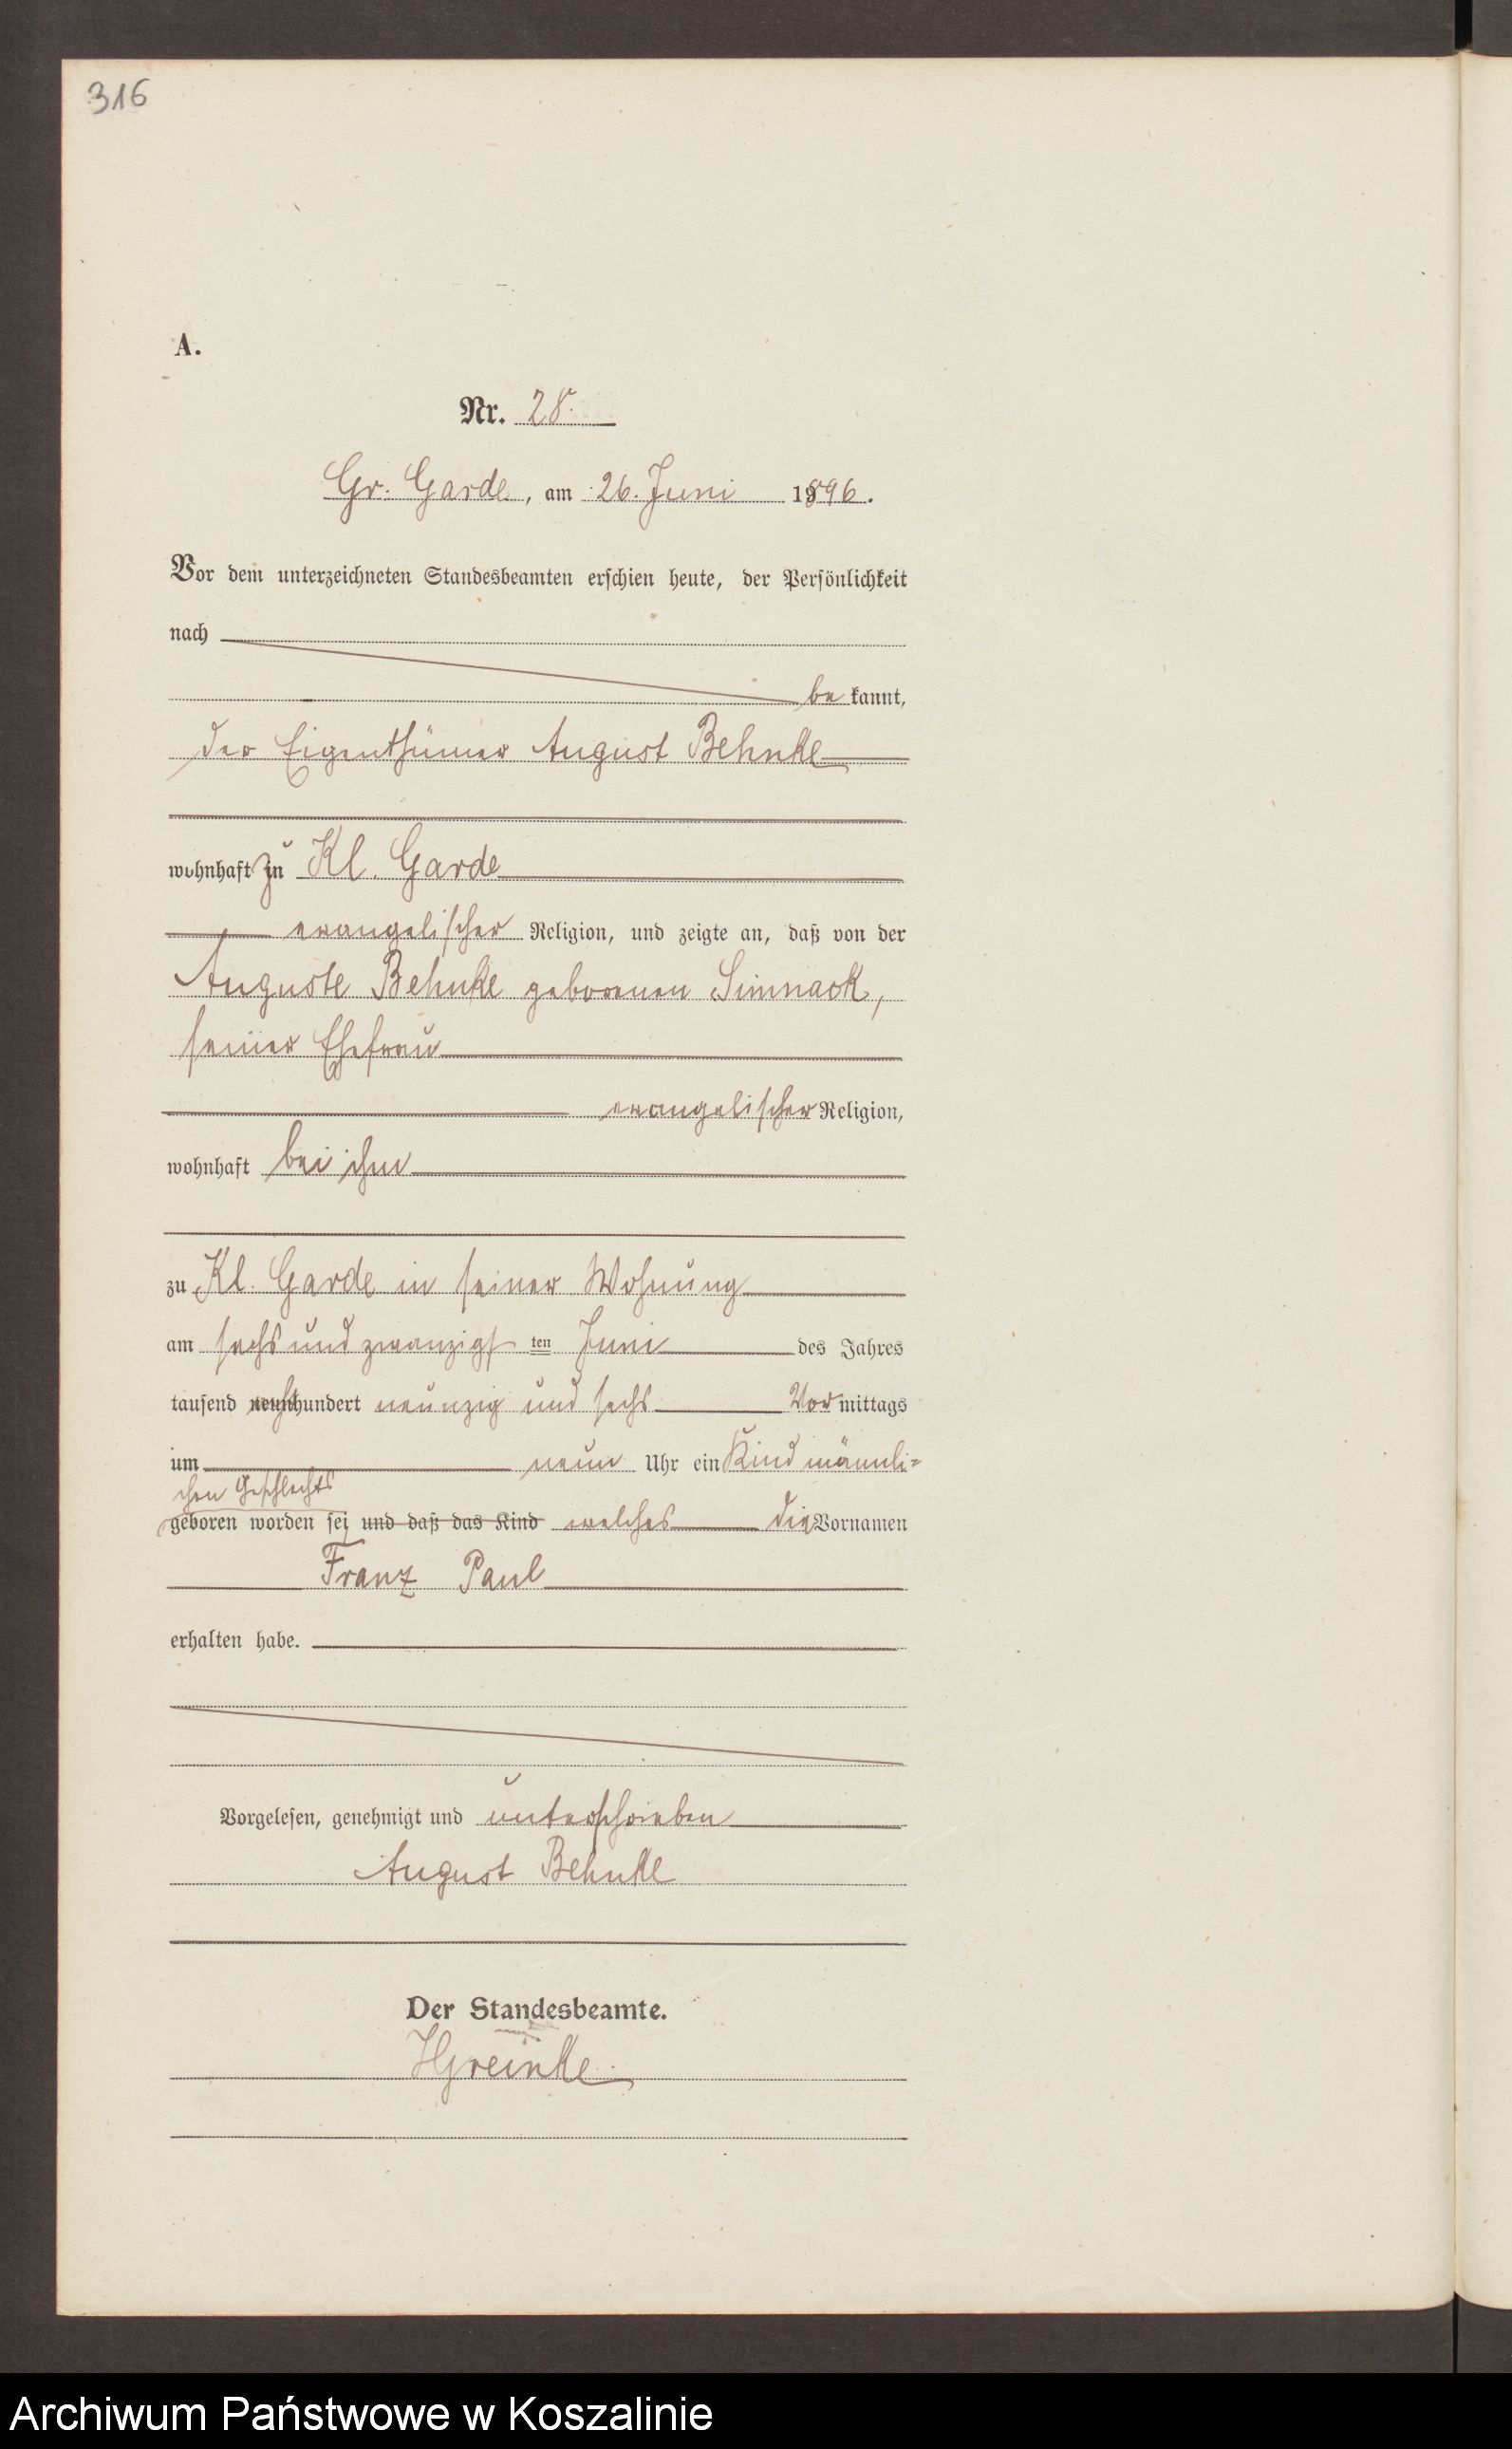 316
A.
Nr. 28.
Gr. Garde, am 26. Juni 1896.
Vor dem unterzeichneten Standesbeamten erschien heute, der Persönlichkeit
nach
be kannt,
der Eigenthümer August Behnke
wohnhaft zu Kl. Garde
evangelischer Religion, und zeigte an, daß von der
Auguste Behnke geborenen Simnack,
seiner Ehefrau
evangelischer Religion,
wohnhaft bei ihm
zu Kl. Garde in seiner Wohnung
am sechs und zwanzigsten Juni des Jahres
tausend achthundert neunzig und sechs Vormittags
um neun Uhr ein Kind männli=
chen Geschlechts
geboren worden sei und daß das Kind welches die Vornamen
Franz Paul
erhalten habe.
Vorgelesen, genehmigt und unterschrieben
August Behnke
Der Standesbeamte.
Archiwum Państwowe w Koszalinie